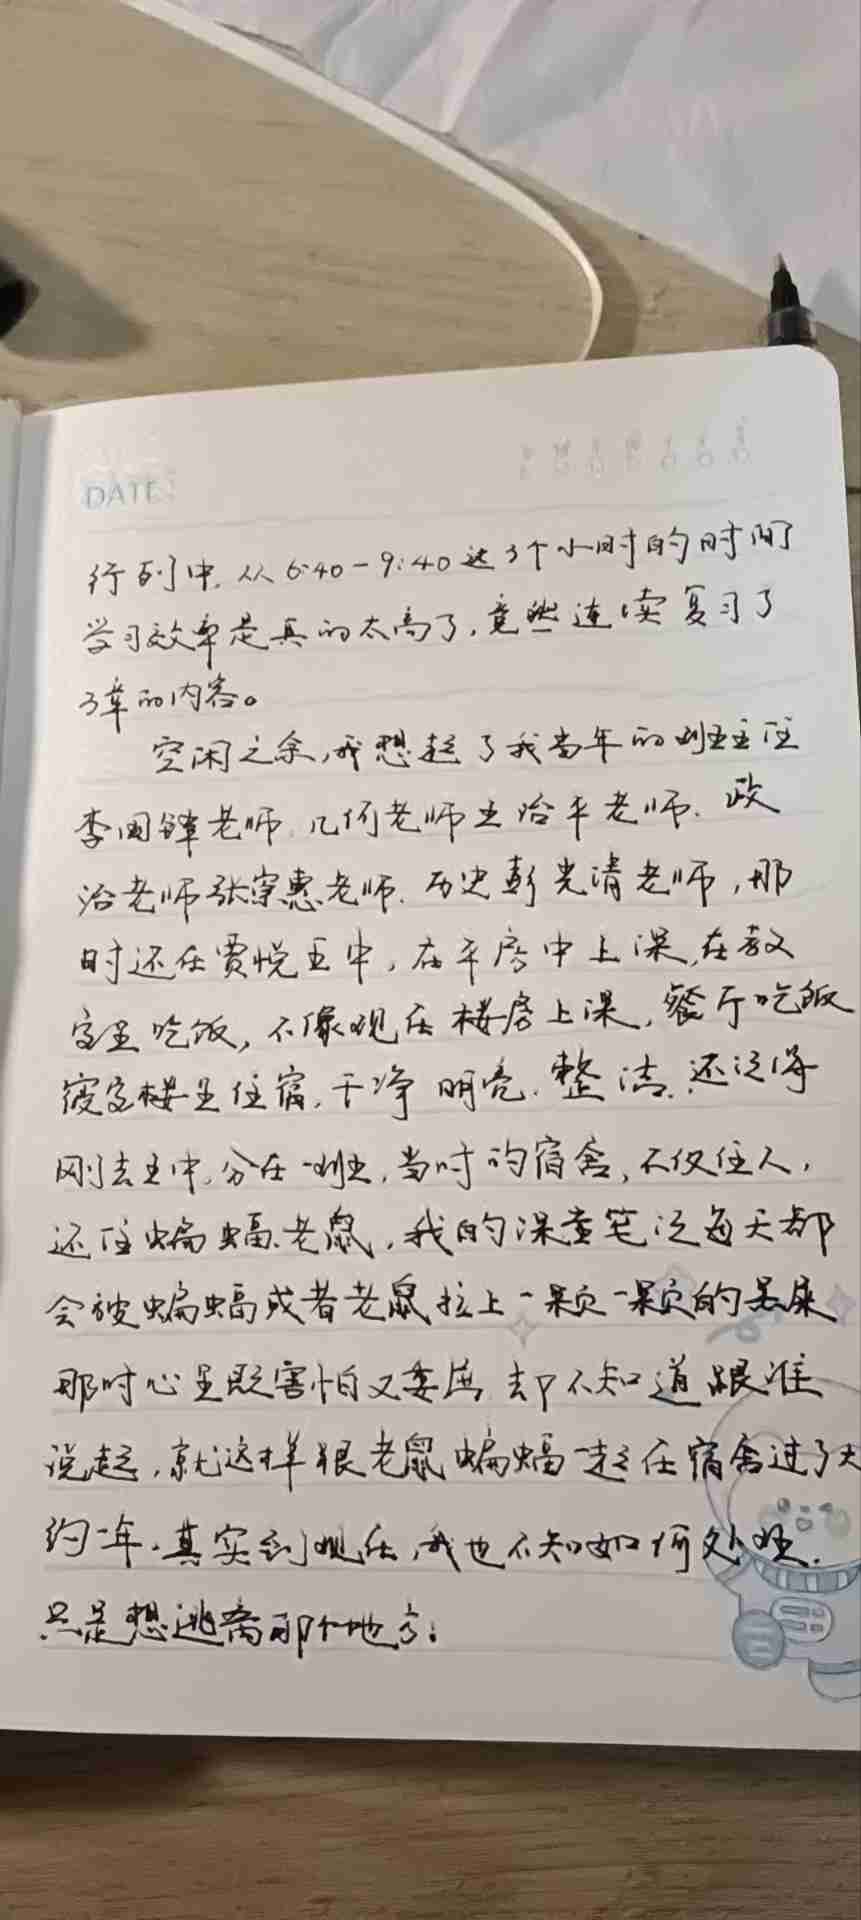 DATE:
行列中,从6:40-9:40这3个小时的时间
学习效率是真的太高了,竟然连续复习了
3章的内容。
空闲之余,我想起了我当年的班主任
李国锋老师,几何老师王治平老师.政
治老师张家惠老师.历史彭光清老师,那
时还在贾悦五中,在平房中上课,在教
室里吃饭,不像现在楼房上课,餐厅吃饭
寝室楼里住宿,干净明亮.整洁.还记得
刚去五中,分在一班,当时的宿舍,不仅住人,
还住蝙蝠.老鼠,我的课堂笔记每天都
会被蝙蝠或者老鼠拉上一颗一颗的黑屎
那时心里既害怕又委屈,却不知道跟谁
说起,就这样跟老鼠蝙蝠一起在宿舍过了大
约一年.其实到现在,我也不知如何处理.
只是想逃离那个地方.